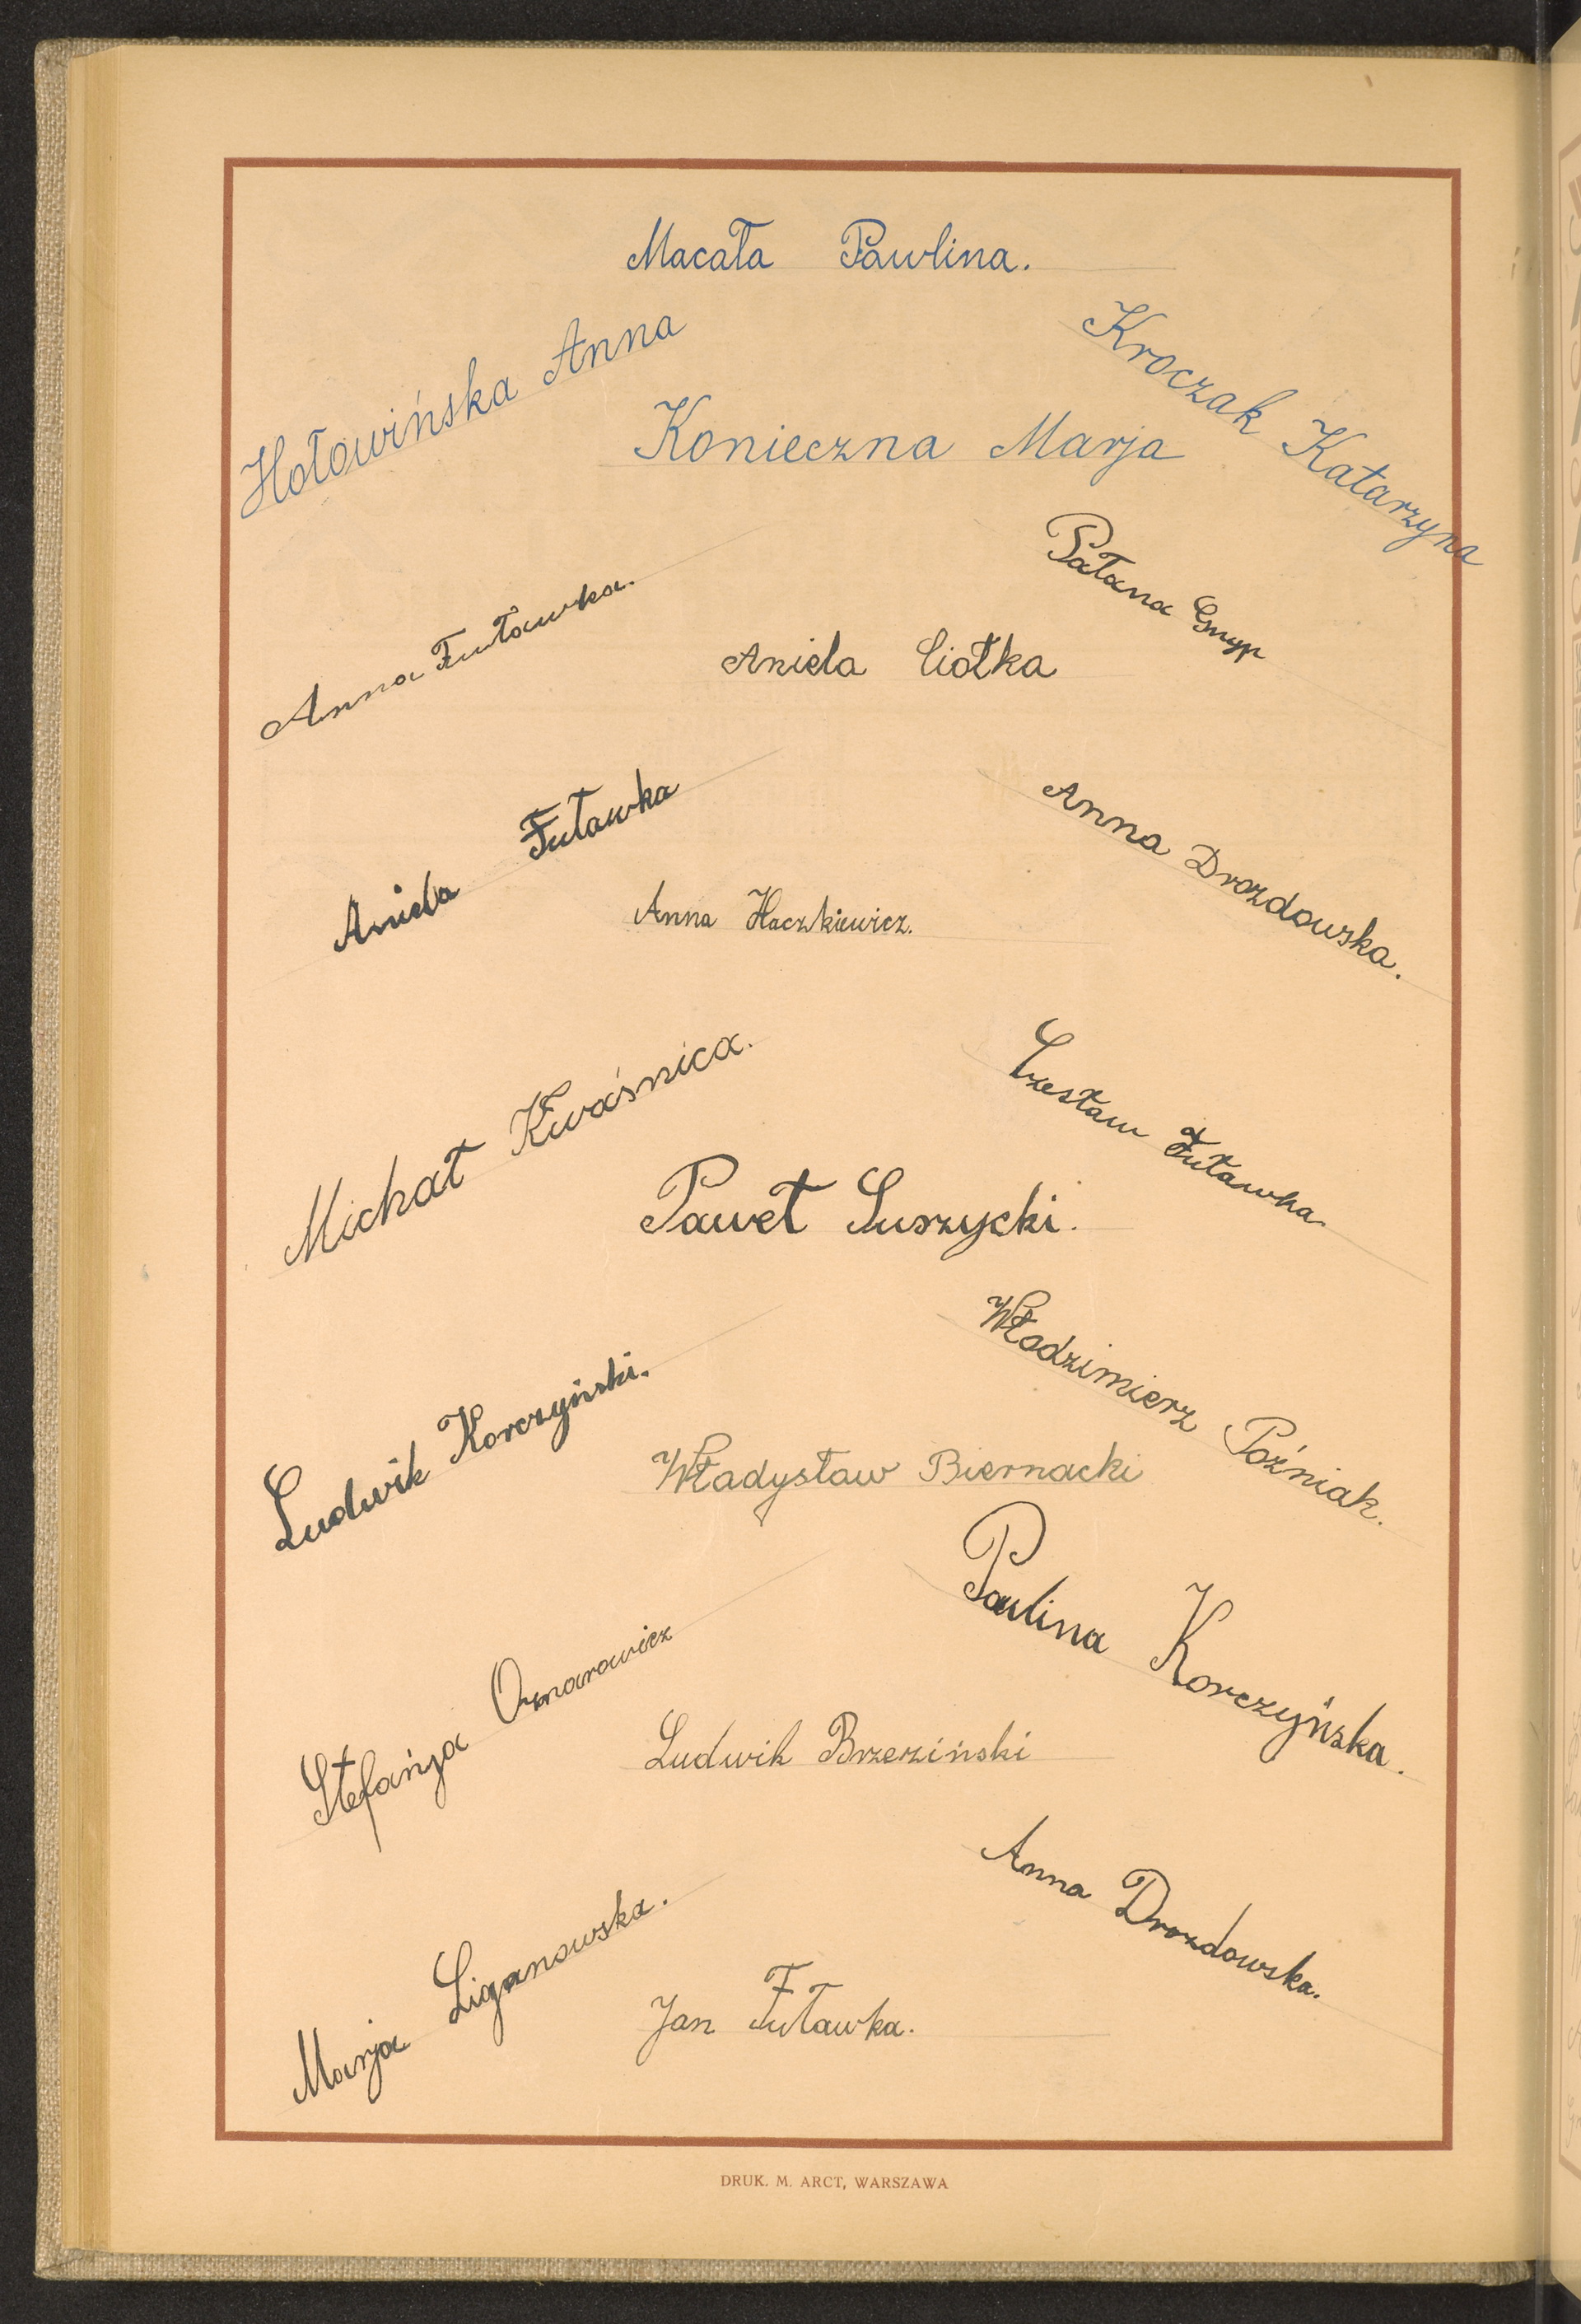 Macała Pawlina.
Hołowińska Anna
Kroczak Katarzyna
Konieczna Marja
Anna Futawka.
Gnyp
Aniela Ciołka
Aniela Futawka
Anna Drozdowska.
Anna Haczkiewicz.
Michał Kwaśnica.
Czesław Futawka.
Paweł Suszycki.
Włodzimierz Poźniak.
Ludwik Korczyński.
Władysław Biernacki
Paulina Korczyńska.
Stefanja
Ludwik Brzeziński
Anna Drozdowska.
Marja Liganowska.
Jan Futawka.
DRUK. M. ARCT, WARSZAWA